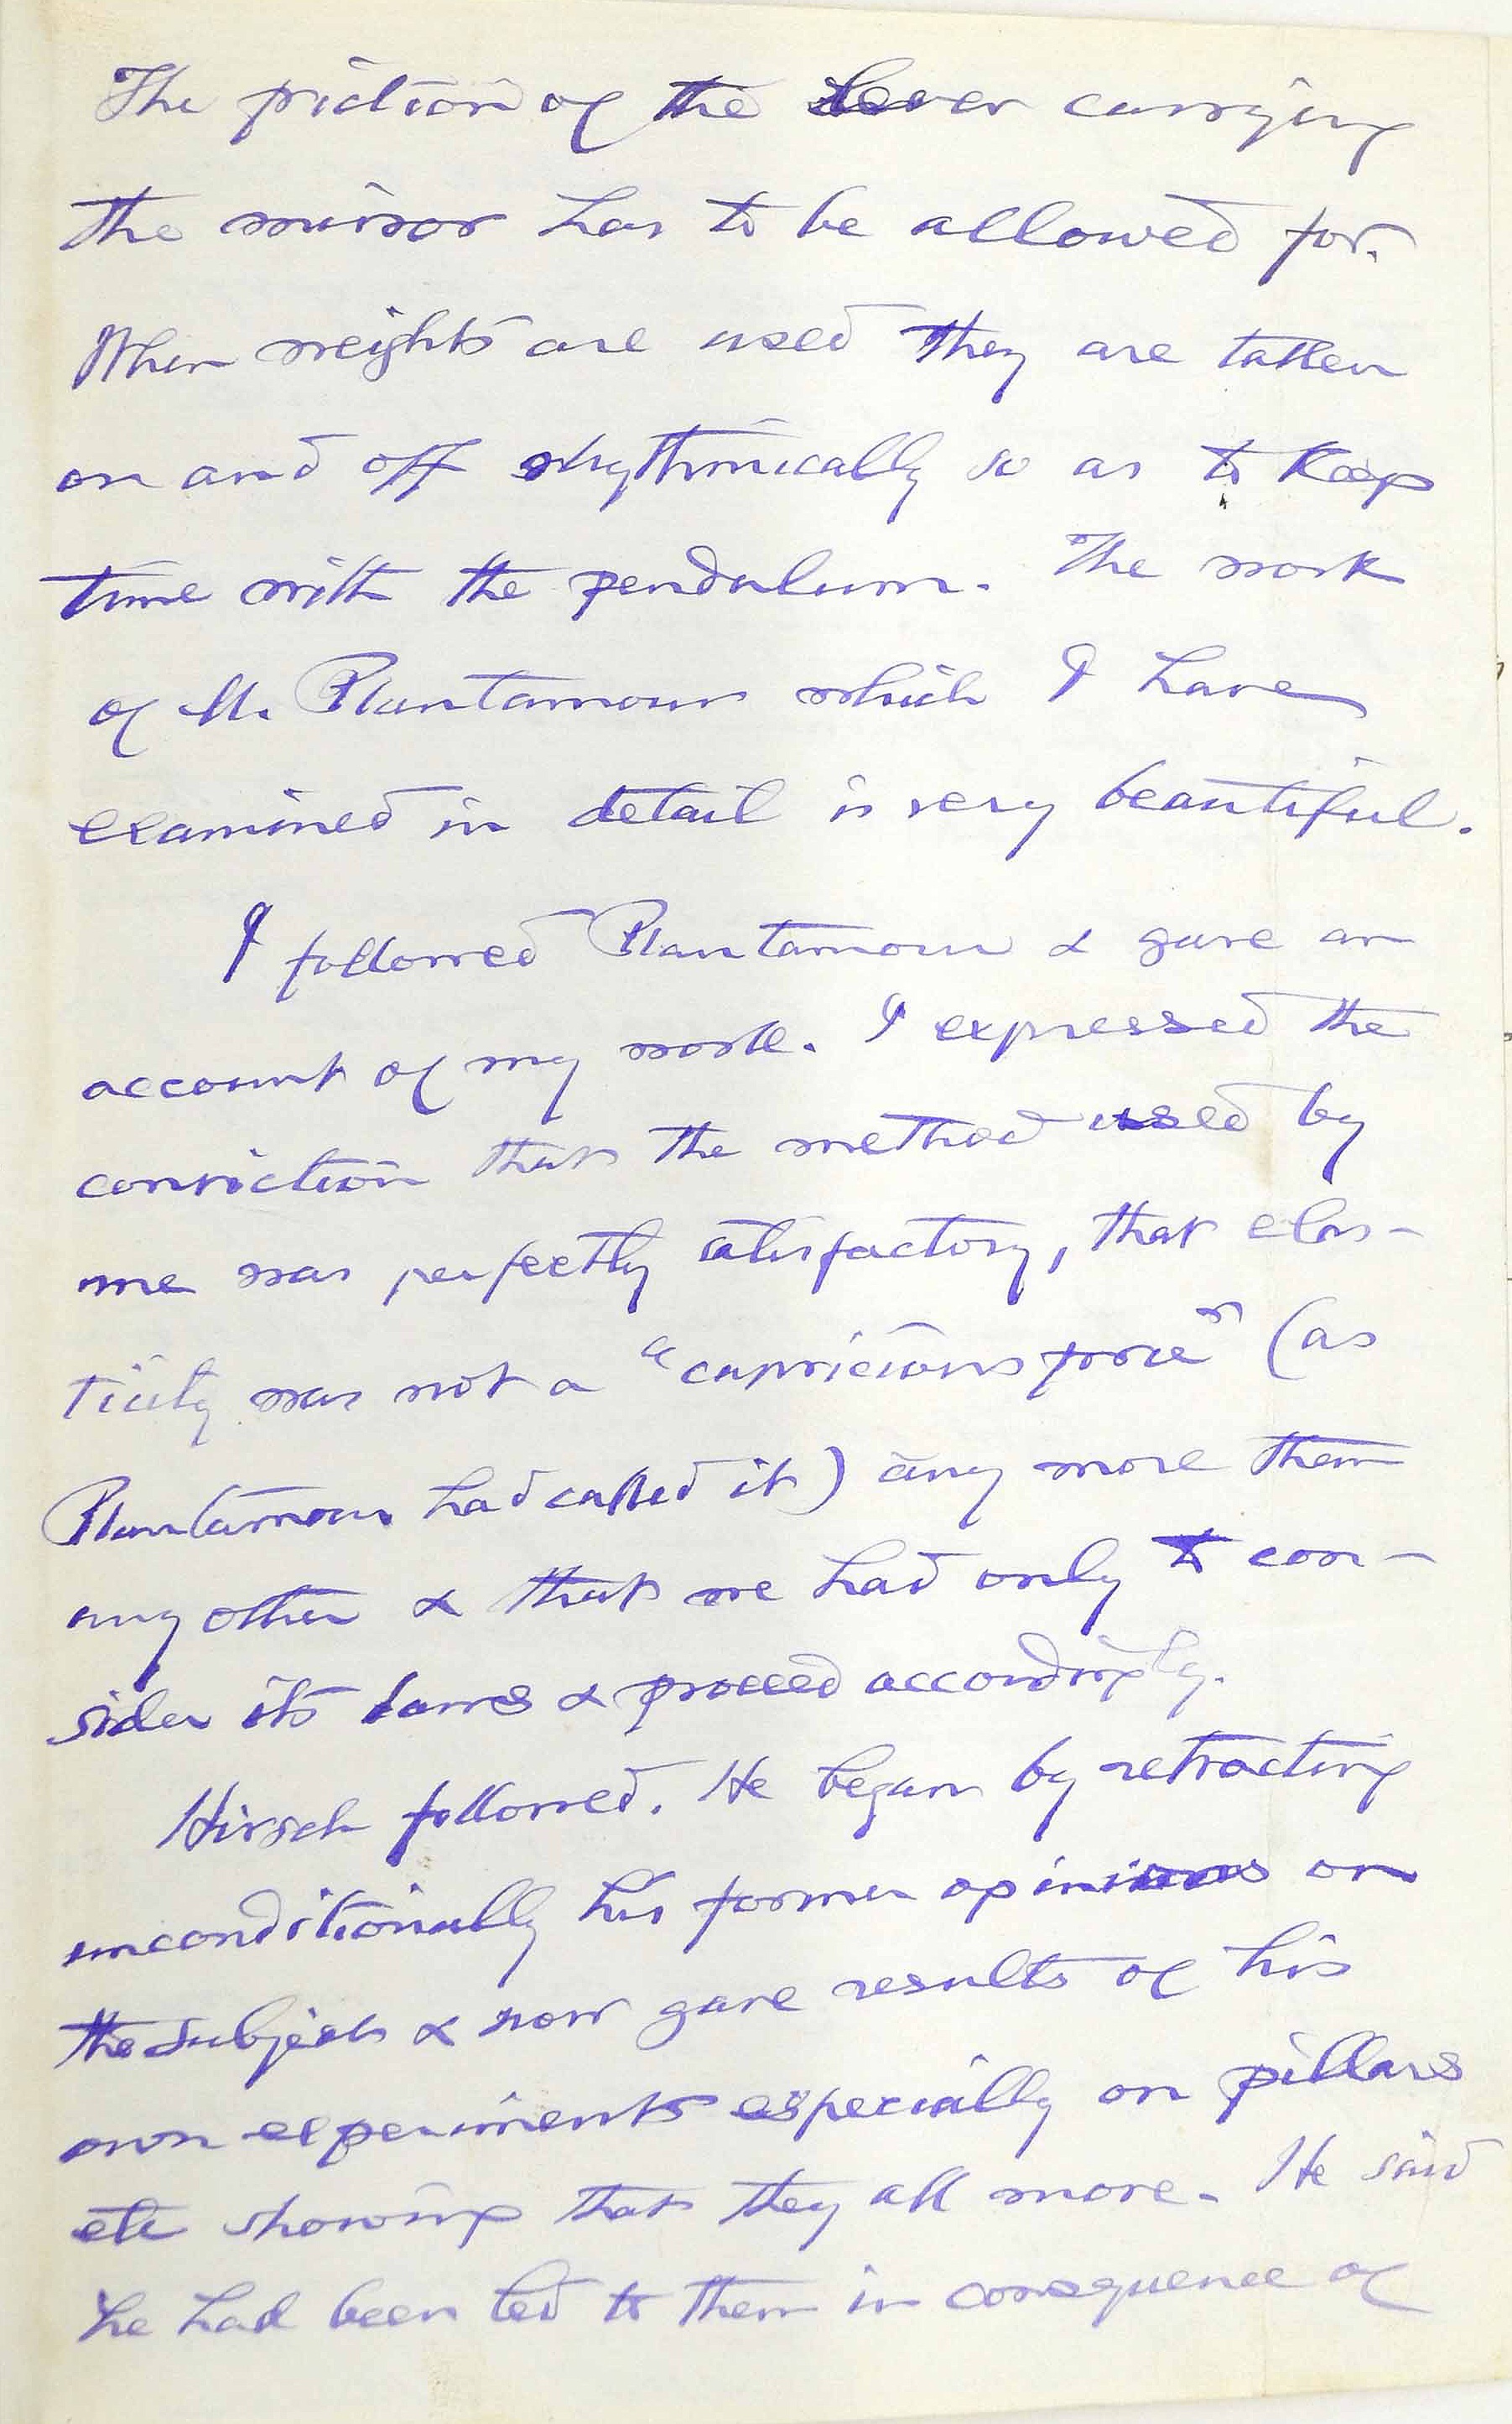 The friction of the lever carrying
the mirror has to be allowed for.
When weights are used they are taken
on and off rhythmically so as to keep
time with the pendulum. The work
of M. Plantamour which I have
examined in detail is very beautiful.
I followed Plantamour & gave an
account of my work. I expressed the
conviction that the method used by
me was perfectly satisfactory, that elas-
ticity was not a "capricious force" (as
Plantamour had called it) any more than
any other & that we had only to con-
sider its laws & proceed accordingly.
Hirsch followed. He began by retracting
unconditionally his former opinions on
the subject & now gave results of his
own experiments especially on pillars
etc showing that they all move. He said
he had been led to them in consequence of